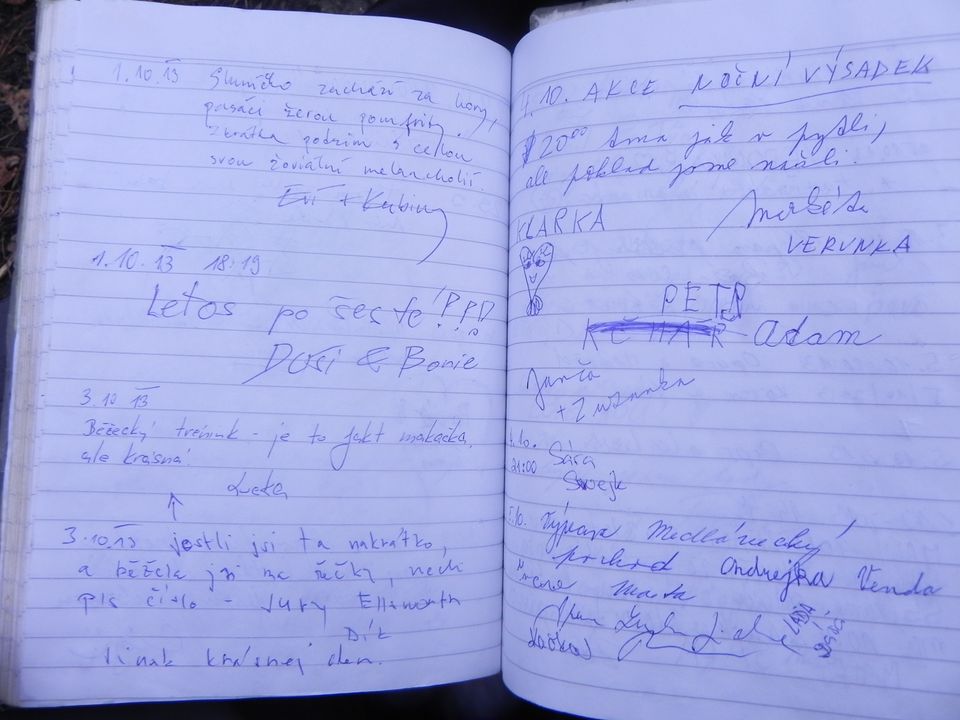 1.10.13 Sluníčko zachází za hory,
pasáci žerou pomfrity.
Zkrátka podzim s celou
svou žoviální melancholií.
Evi + Kubin
1.10.13 18:19
Letos po šesté!?!?!?
Doši & Bonie
3.10 13
Běžecký trénink - je to fakt makačka,
ale krásná!
Lucka
3.10.13 jestli jsi ta nakrátko,
a běžela jsi na
piš číslo - Jury Ellsworth
Dík
Jinak krásnej den.
4.10. AKCE NOČNÍ VÝSADEK
20⁰⁰ tma jak v pytli,
ale poklad jsme našli.
Markéta
KLARKA
VERUNKA
PETR
Adam
Janča
+ Zuzanka
4.10.
21:00 Sára
Swejk
5.10. Výprava Medlánecký
pochod Ondrejka Venda
Marta
LÁĎA